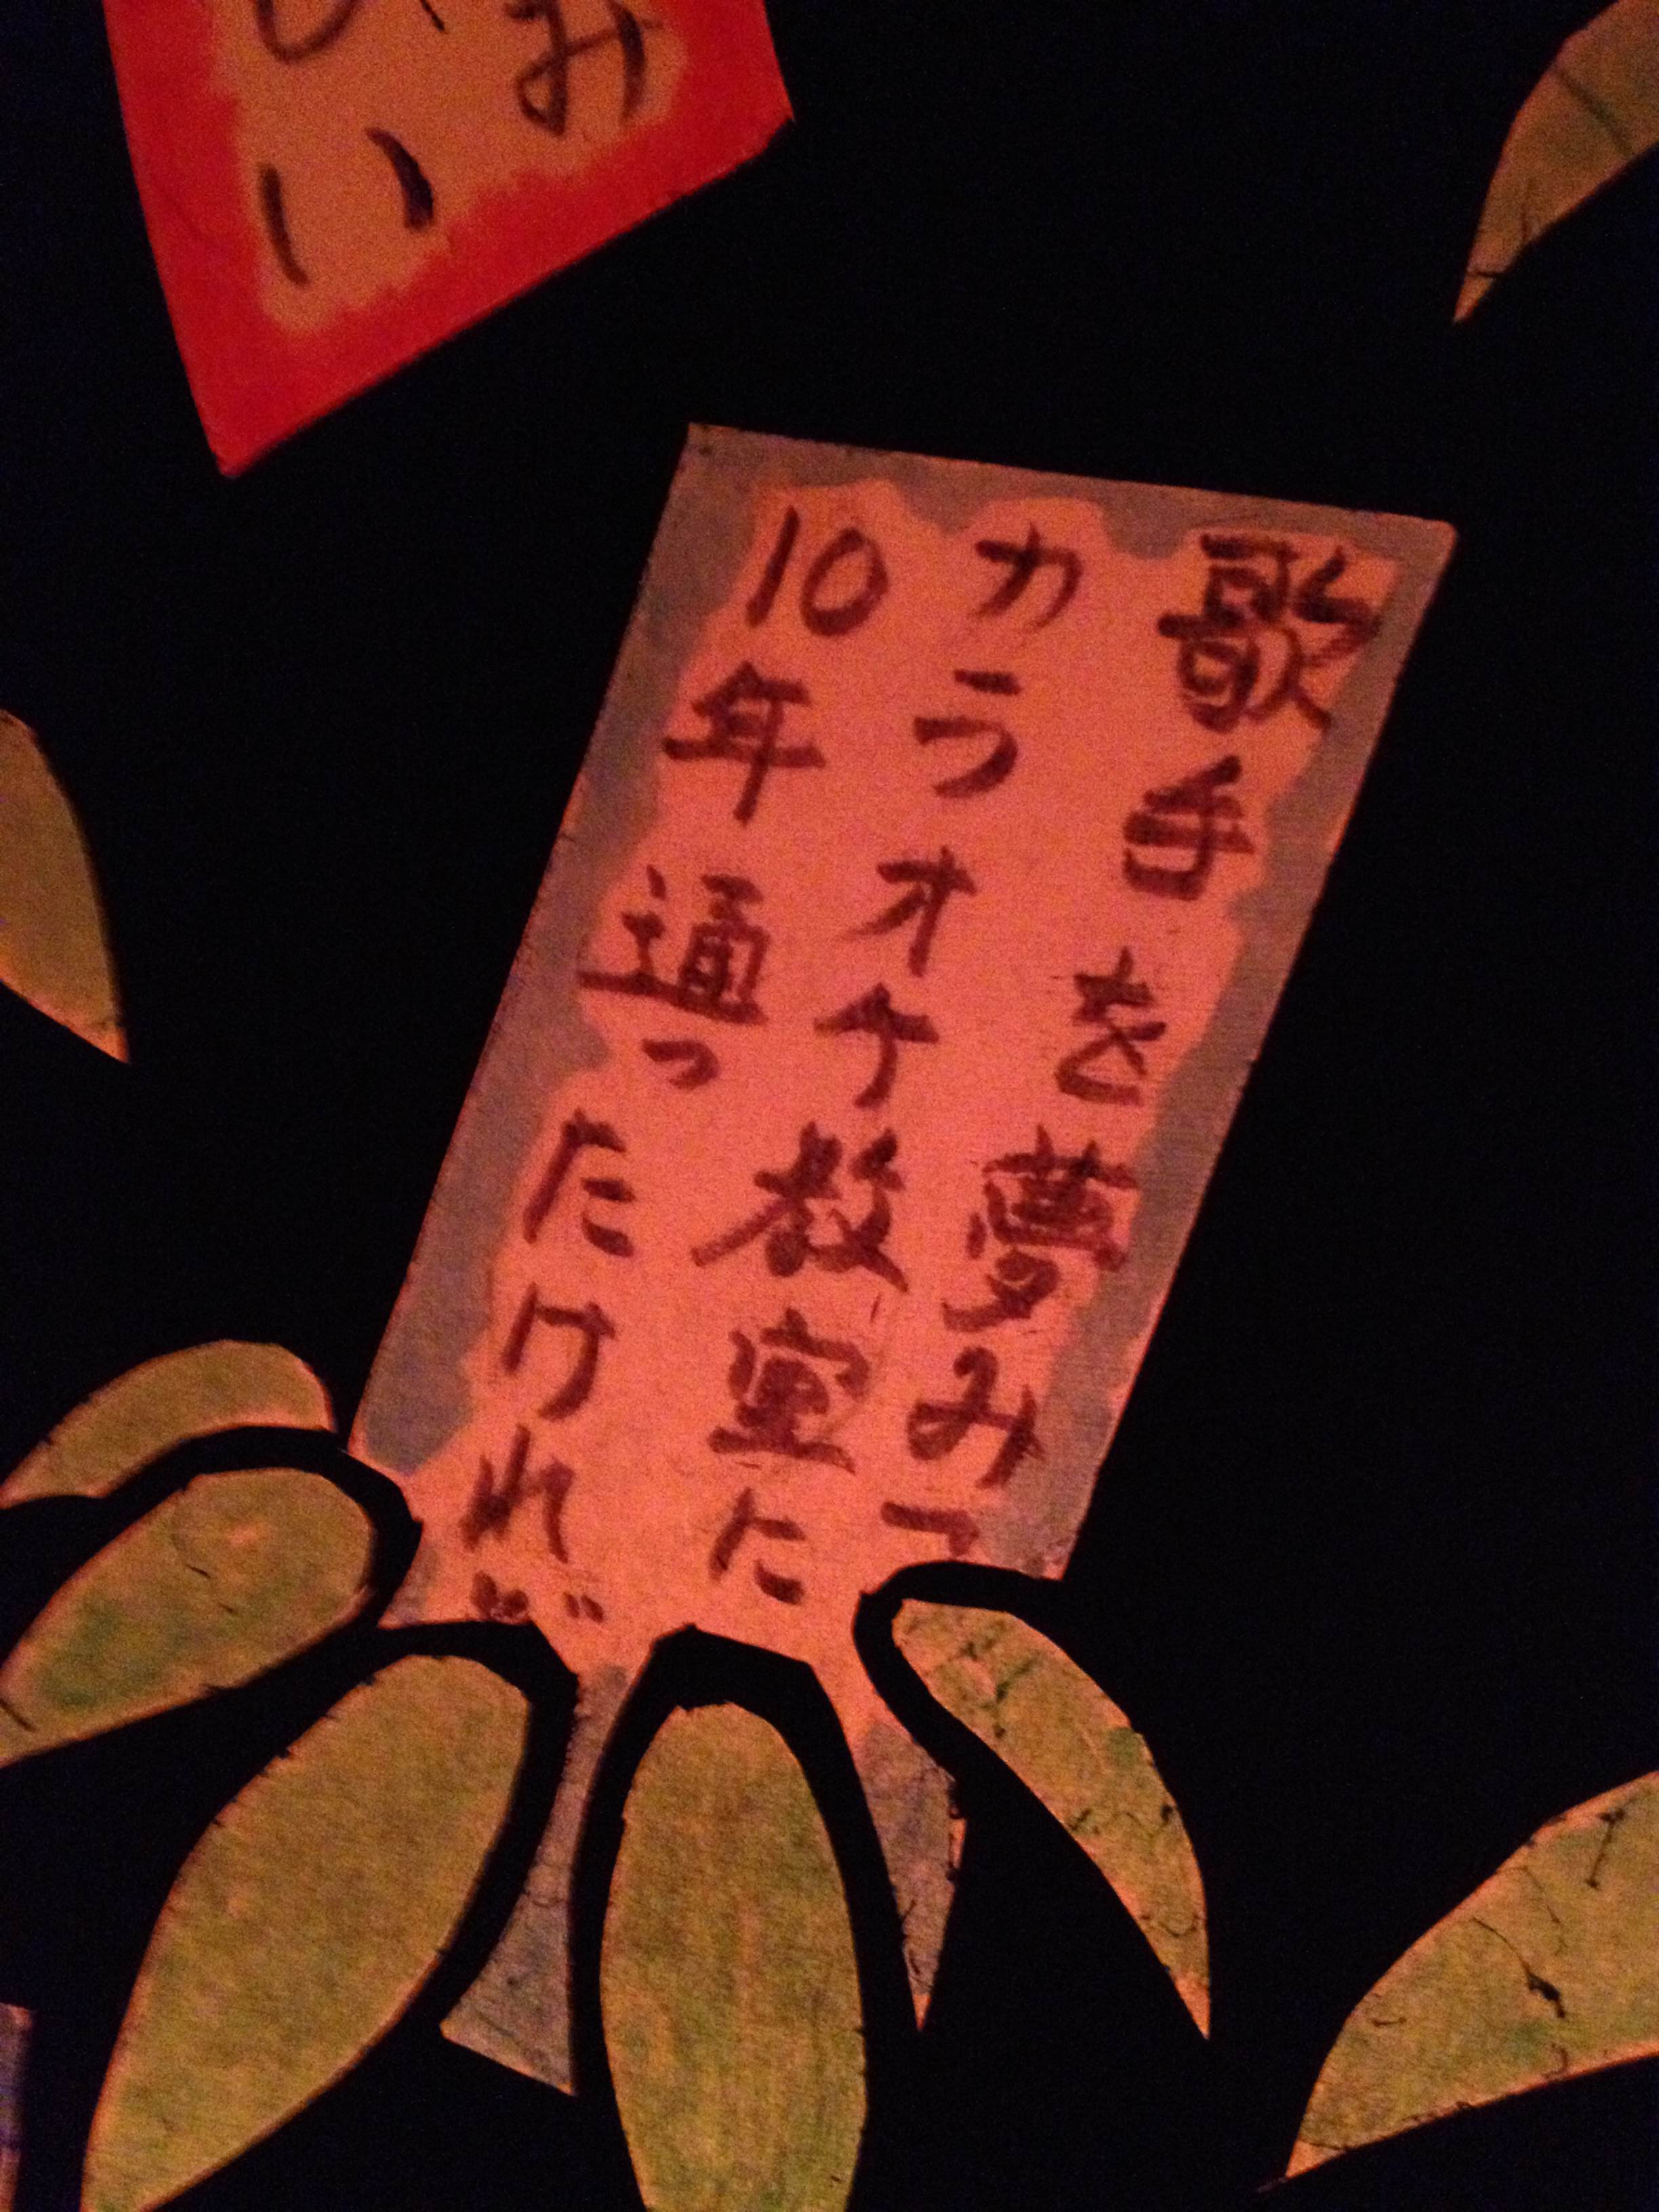 歌手を夢みて
カラオケ教室に
10年通ったけれど
い